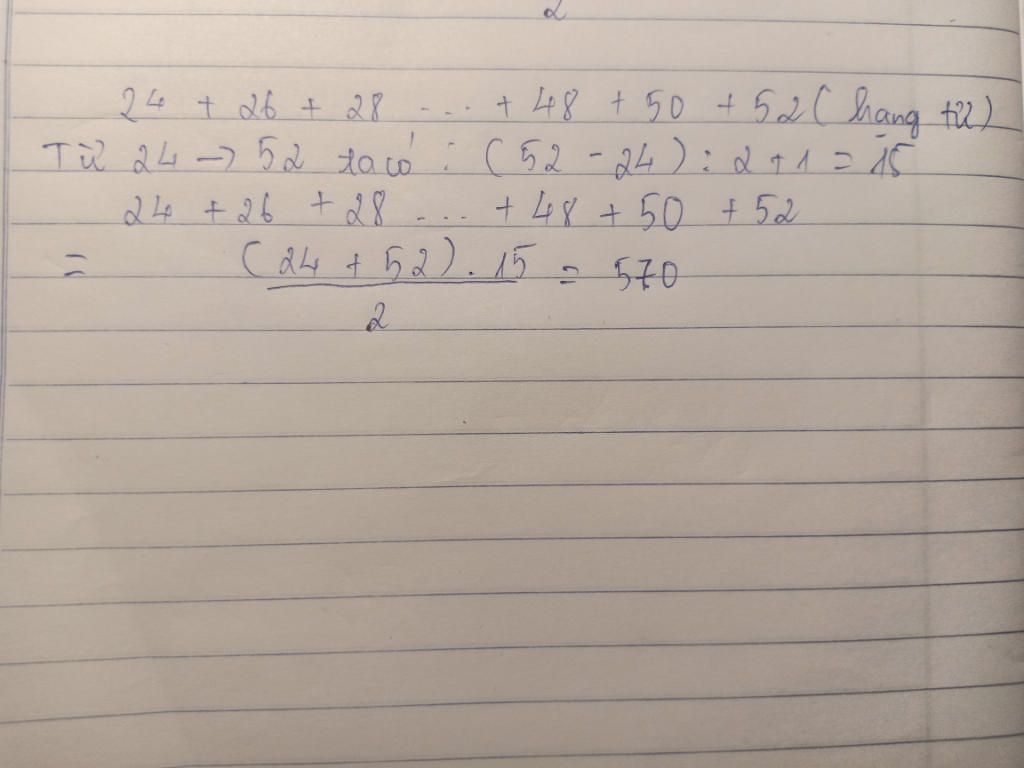 2
24 + 26 + 28 ... + 48 + 50 + 52 (hạng tử)
Từ 24 → 52 ta có : (52 - 24) : 2 + 1 = 15
24 + 26 + 28 ... + 48 + 50 + 52
= (24 + 52) . 15 = 570
2